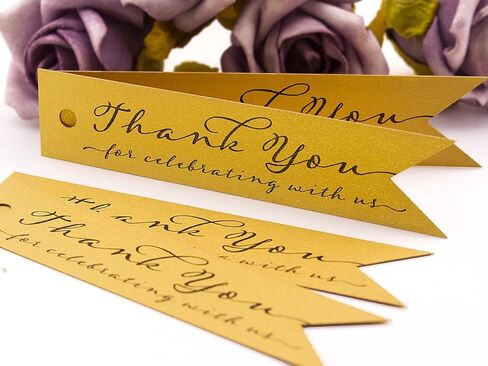 You
Thank You
for celebrating with us
Th ank You
with us
Thank You
for celebrating with us